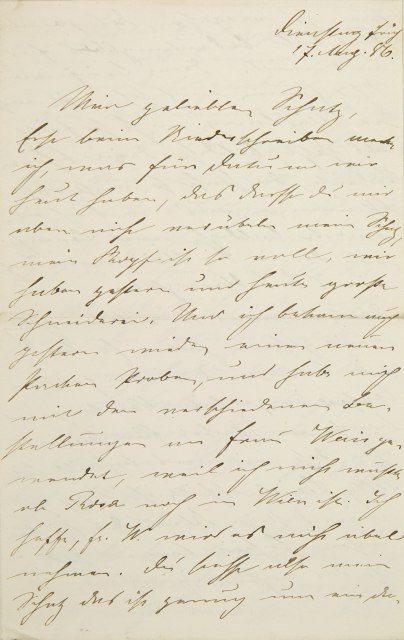 Dienstag früh
17. Aug. 86.
Mein geliebter Schatz,
Erst beim Niederschreiben merke
ich, was für Datum wir
heut haben, das darfst du mir
aber nicht verübeln mein Schatz,
mein Kopf ist so voll, wir
haben gestern und heute große
Schneiderei. Und ich bekam auch
gestern wieder einen neuen
Packen Proben, und habe mich
mit den verschiedenen Be-
stellungen an Frau Weiss ge-
wendet, weil ich nicht wußte
ob Rosa noch in Wien ist. Ich
hoffe, Fr. W wird es nicht übel
nehmen. Du siehst also mein
Schatz das ist genug um ein